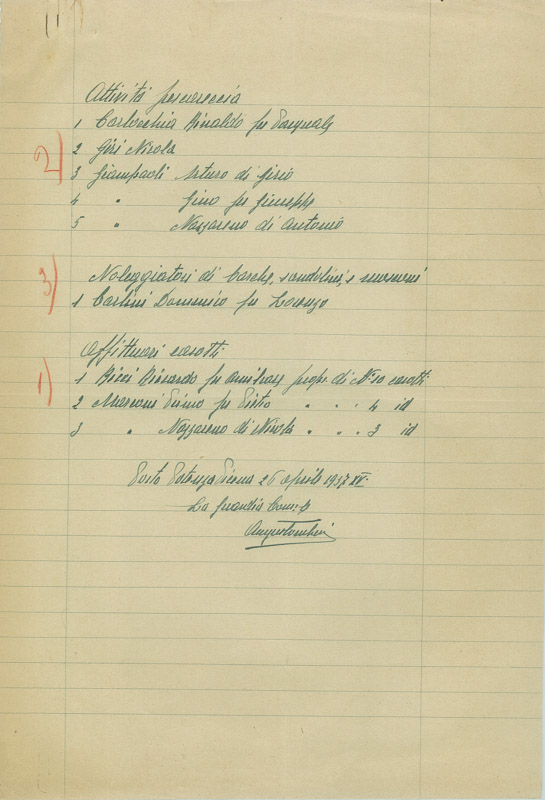 Attività peschereccia
1 Carlocchia Rinaldo fu Pasquale
2 Giri Nicola
3 Giampaoli Arturo di Gisio
4 " Gino fu Giuseppe
5 " Nazzareno di Antonio
2)
Noleggiatori di barche, sandolini, e mosconi
1 Carlini Domenico fu Lorenzo
3)
Affittuari casotti
1 Ricci Riccardo fu Amilcare propr. di N° 10 casotti
2 Marconi Primo fu Sisto " " " 4 id
3 " Nazzareno di Nicola " " " 3 id
1)
Porto Potenza Picena 26 aprile 1937 XV.
La Guardia Com.le